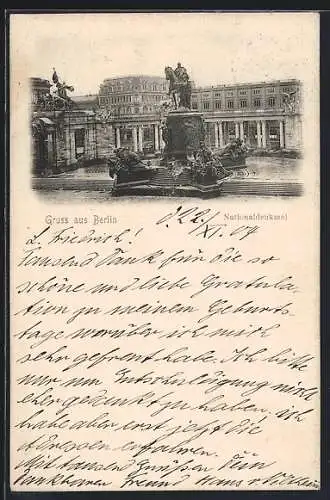 Gruss aus Berlin
Nationaldenkmal
d. 22/XI. 07
L. Friedrich!
Tausend Dank für die so
schöne und liebe Gratula-
tion zu meinem Geburts-
tage worüber ich mich
sehr gefreut habe. Ich bitte
nur um Entschuldigung nicht
eher gedankt zu haben, ich
habe aber erst jetzt die
Adressen erfahren.
Mit tausend Grüssen Dein
dankbarer Freund Hans